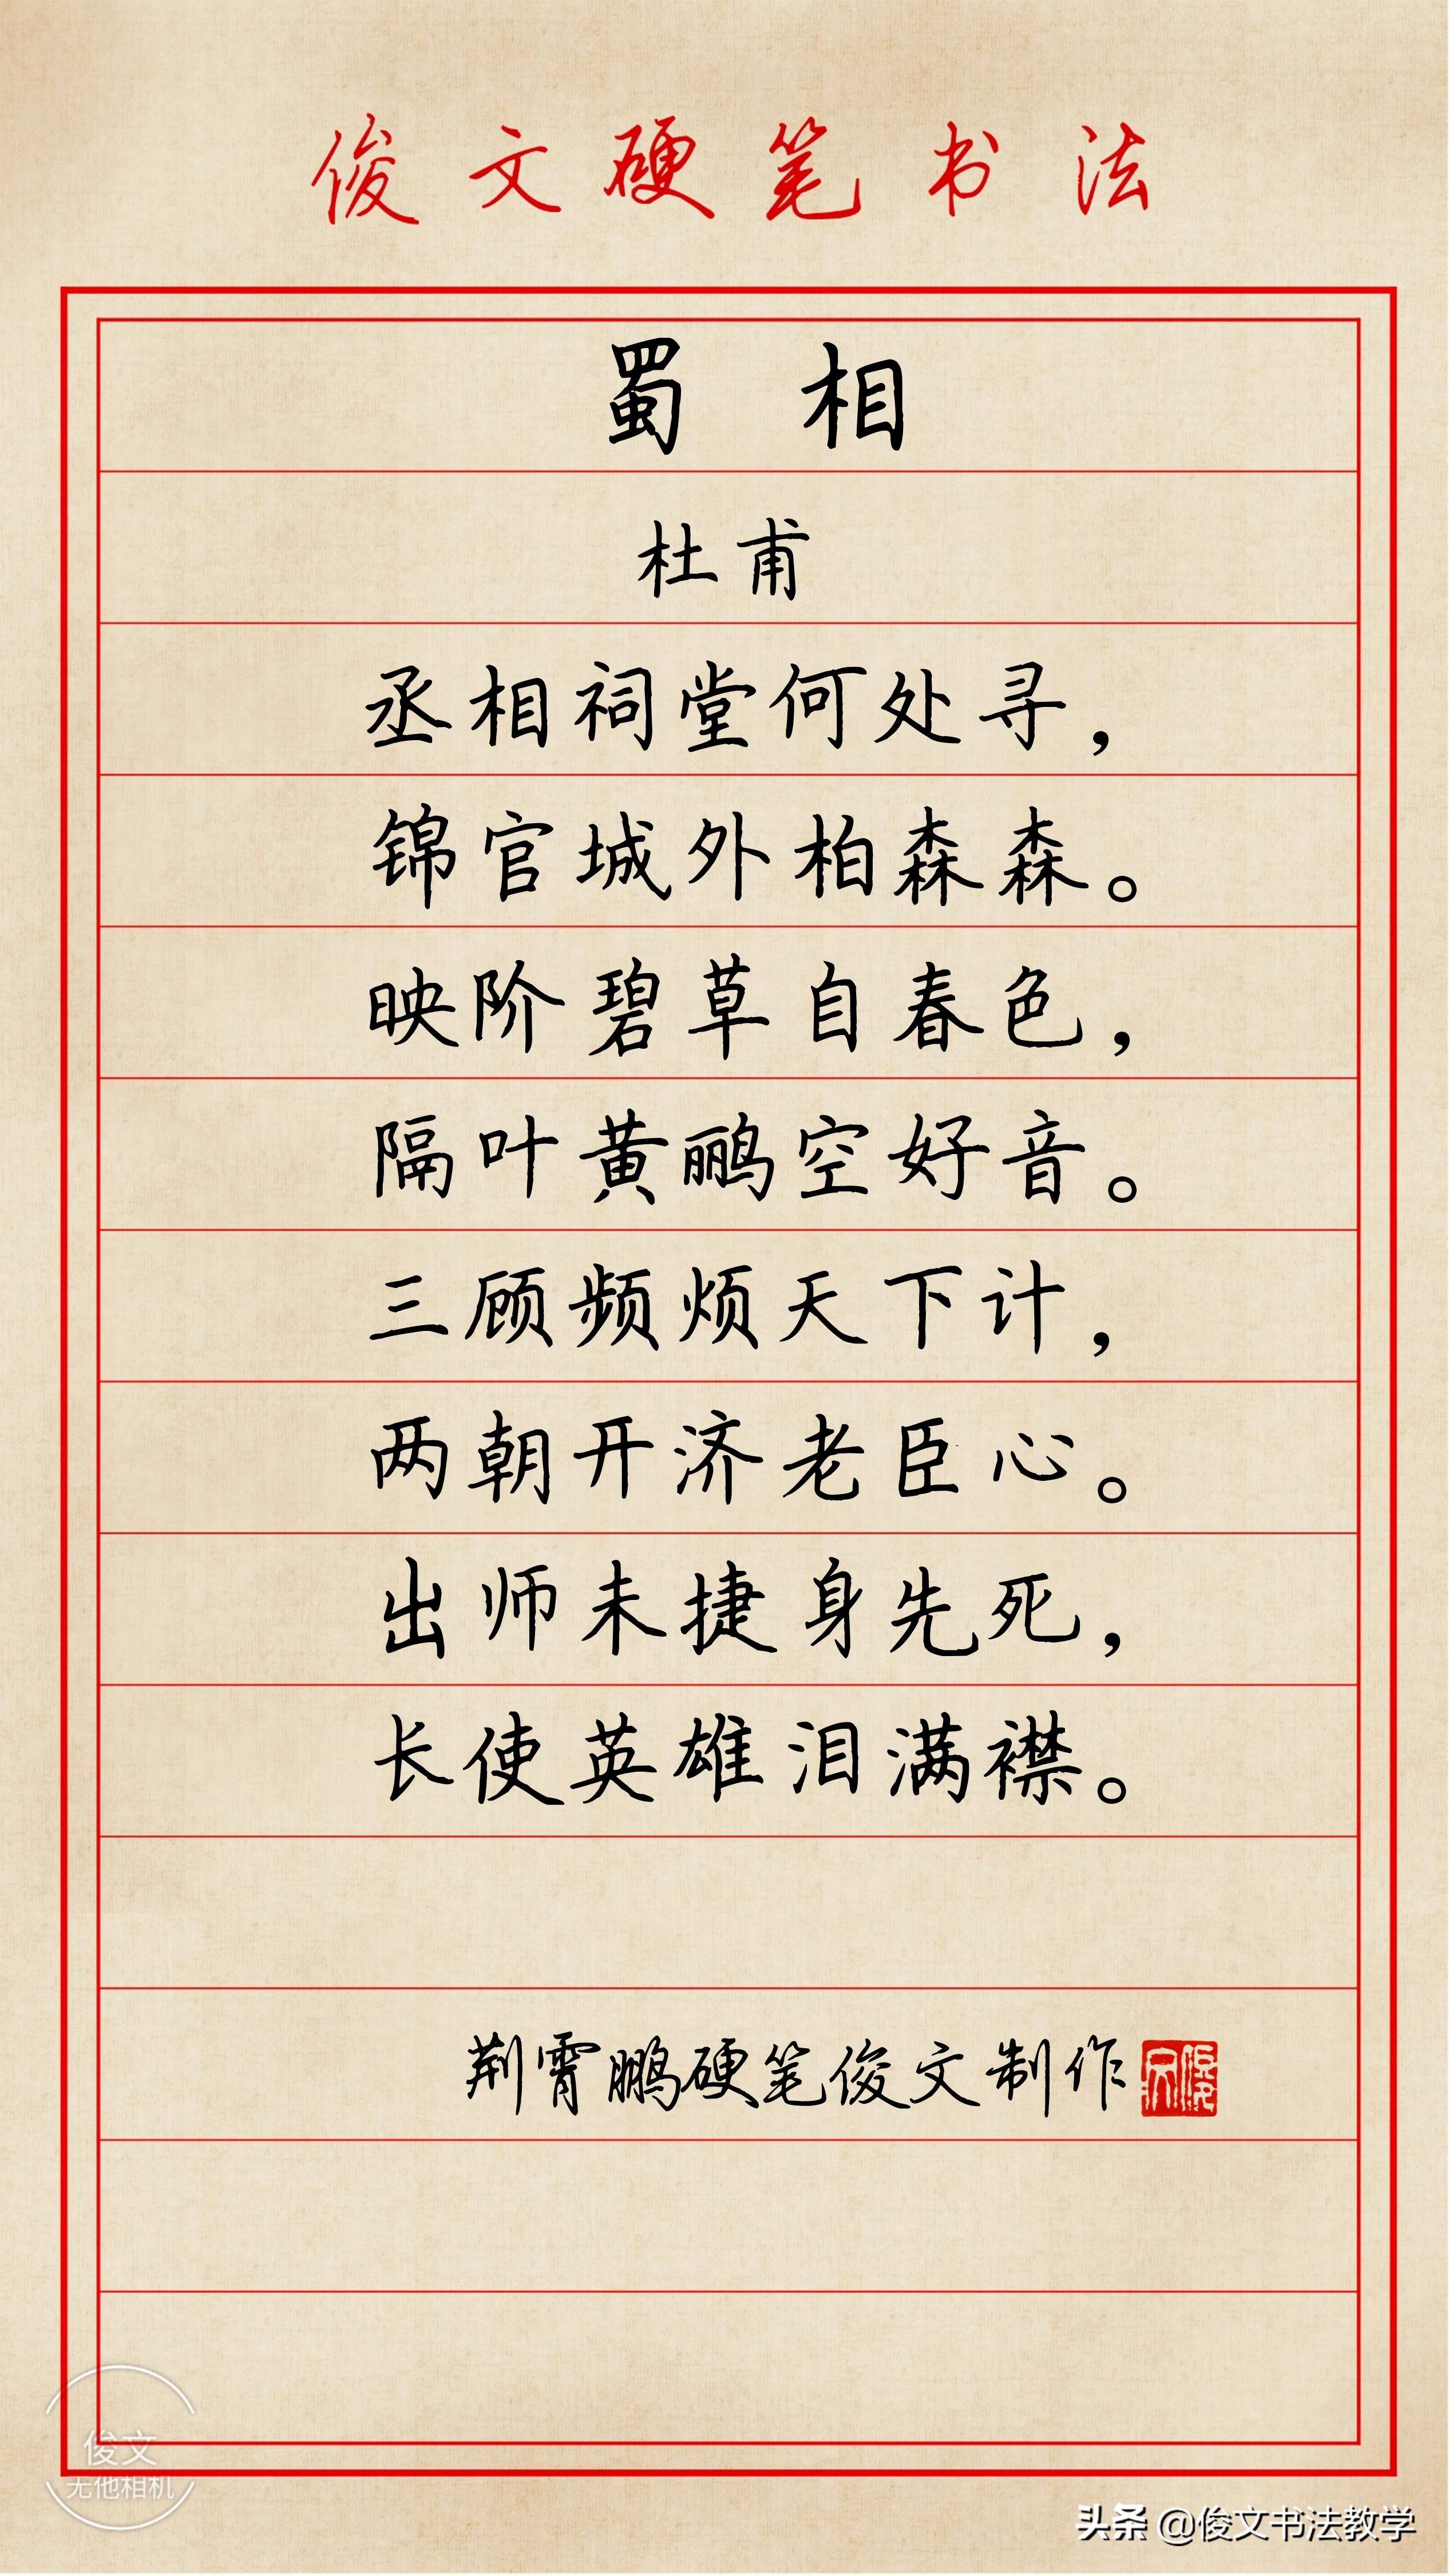 俊文硬笔书法
蜀相
杜甫
丞相祠堂何处寻，
锦官城外柏森森。
映阶碧草自春色，
隔叶黄鹂空好音。
三顾频烦天下计，
两朝开济老臣心。
出师未捷身先死，
长使英雄泪满襟。
荆霄鹏硬笔俊文制作
俊文
无他相机
头条 @俊文书法教学